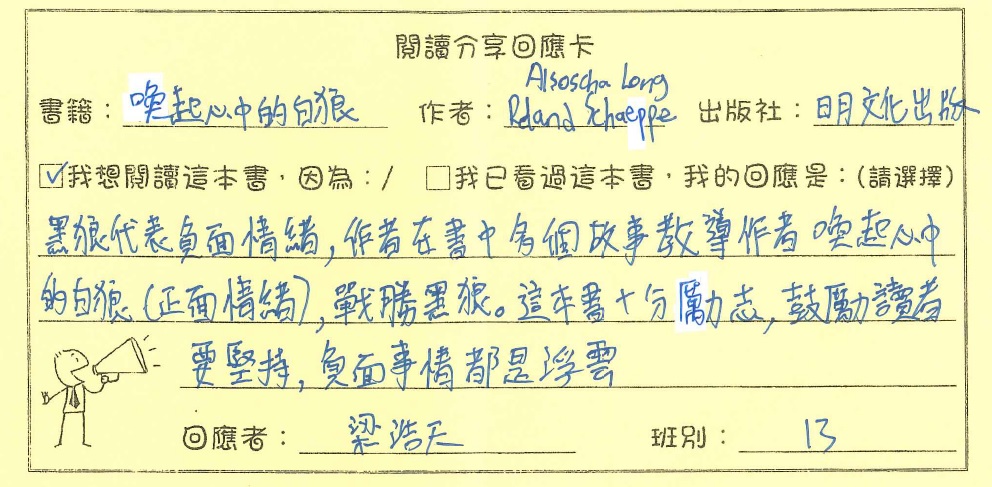 閱讀分享回應卡
Alsoscha Long
書籍：喚起心中的白狼 作者：Roland Schaeppe 出版社：日月文化出版
☑我想閱讀這本書，因為：/ □我已看過這本書，我的回應是：(請選擇)
黑狼代表負面情緒，作者在書中多個故事教導作者喚起心中
的白狼(正面情緒)，戰勝黑狼。這本書十分勵志，鼓勵讀者
要堅持，負面事情都是浮雲
回應者：梁浩天 班別：